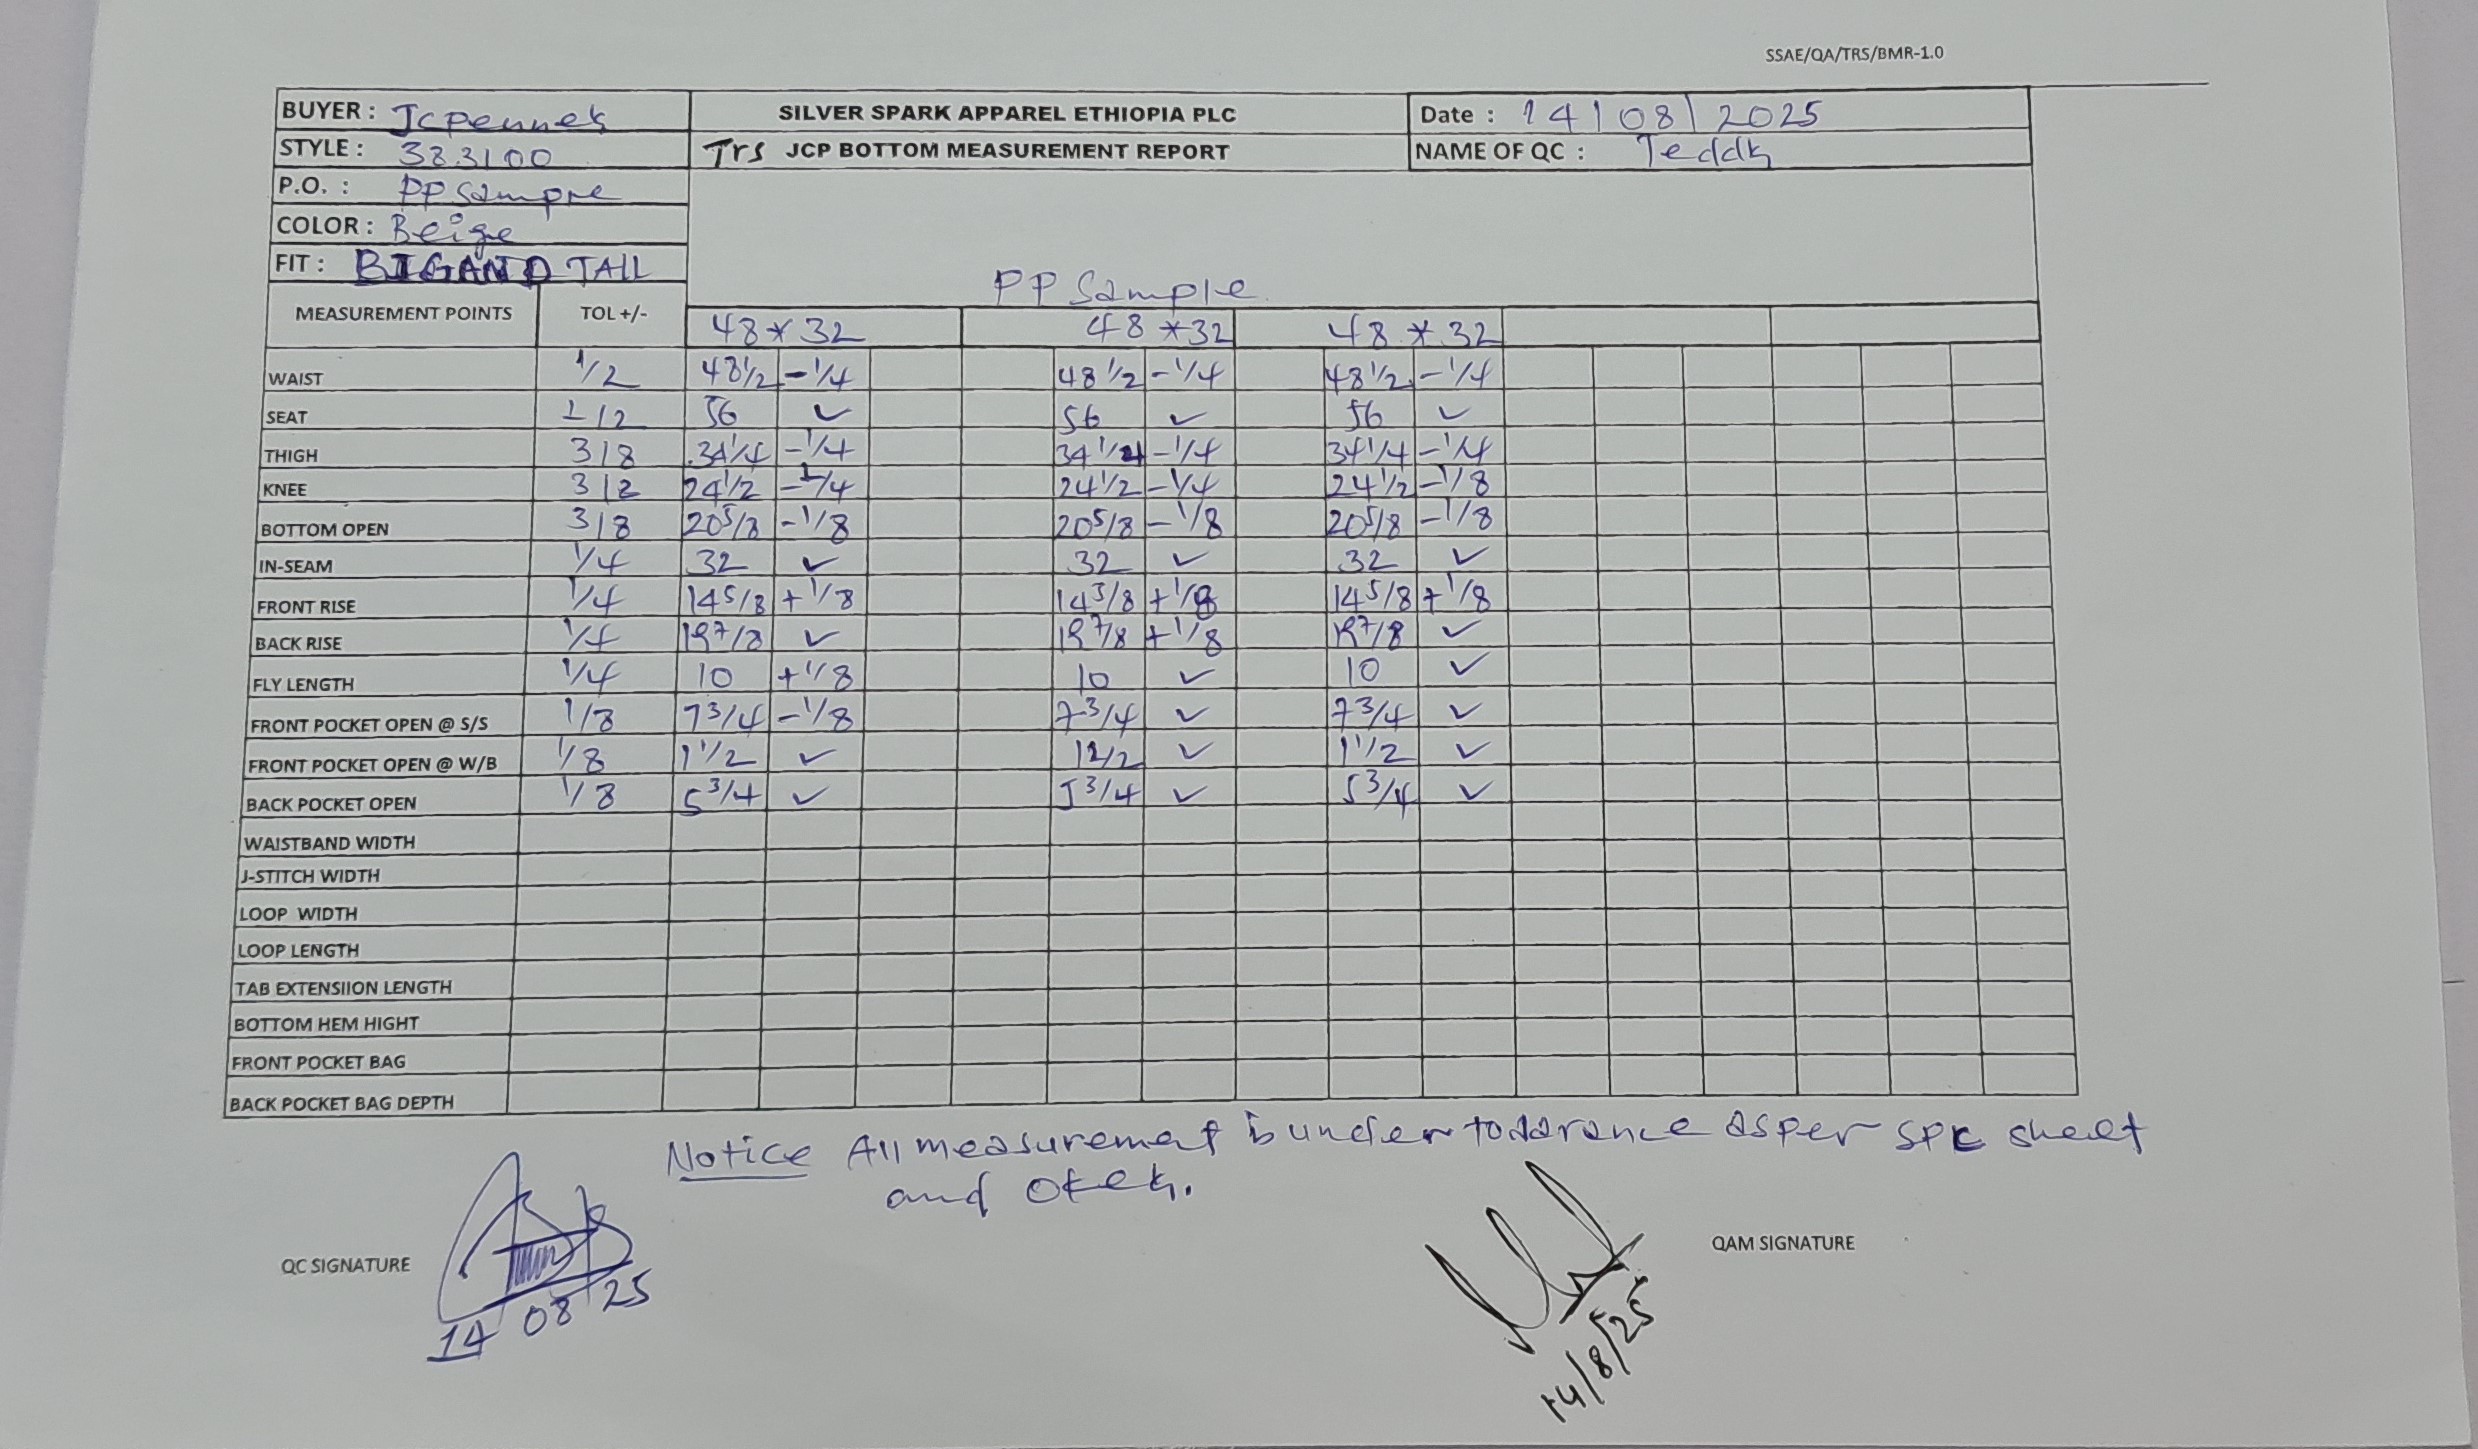 SSAE/QA/TRS/BMR-1.0
BUYER : Jcpenney SILVER SPARK APPAREL ETHIOPIA PLC Date : 14/08/2025
STYLE : 383100 Trs JCP BOTTOM MEASUREMENT REPORT NAME OF QC : Teddy
P.O. : PP Sample
COLOR : Beige
FIT : BIG AND TALL
PP Sample
MEASUREMENT POINTS TOL +/- 48*32 48*32 48*32
WAIST 1/2 48 1/2 -1/4 48 1/2 -1/4 48 1/2 -1/4
SEAT 1/2 56 ✓ 56 ✓ 56 ✓
THIGH 3/8 34 1/4 -1/4 34 1/4 -1/4 34 1/4 -1/4
KNEE 3/8 24 1/2 -1/4 24 1/2 -1/4 24 1/2 -1/8
BOTTOM OPEN 3/8 20 5/8 -1/8 20 5/8 -1/8 20 5/8 -1/8
IN-SEAM 1/4 32 ✓ 32 ✓ 32 ✓
FRONT RISE 1/4 14 5/8 +1/8 14 5/8 +1/8 14 5/8 +1/8
BACK RISE 1/4 ✓ +1/8 ✓
FLY LENGTH 1/4 10 +1/8 10 ✓ 10 ✓
FRONT POCKET OPEN @ S/S 1/8 7 3/4 -1/8 7 3/4 ✓ 7 3/4 ✓
FRONT POCKET OPEN @ W/B 1/8 1 1/2 ✓ 1 1/2 ✓ 1 1/2 ✓
BACK POCKET OPEN 1/8 5 3/4 ✓ 5 3/4 ✓ 5 3/4 ✓
WAISTBAND WIDTH
J-STITCH WIDTH
LOOP WIDTH
LOOP LENGTH
TAB EXTENSIION LENGTH
BOTTOM HEM HIGHT
FRONT POCKET BAG
BACK POCKET BAG DEPTH
Notice All measurement is under tolarance as per spc sheet
and okey.
QC SIGNATURE 14 08 25
QAM SIGNATURE
14/8/25